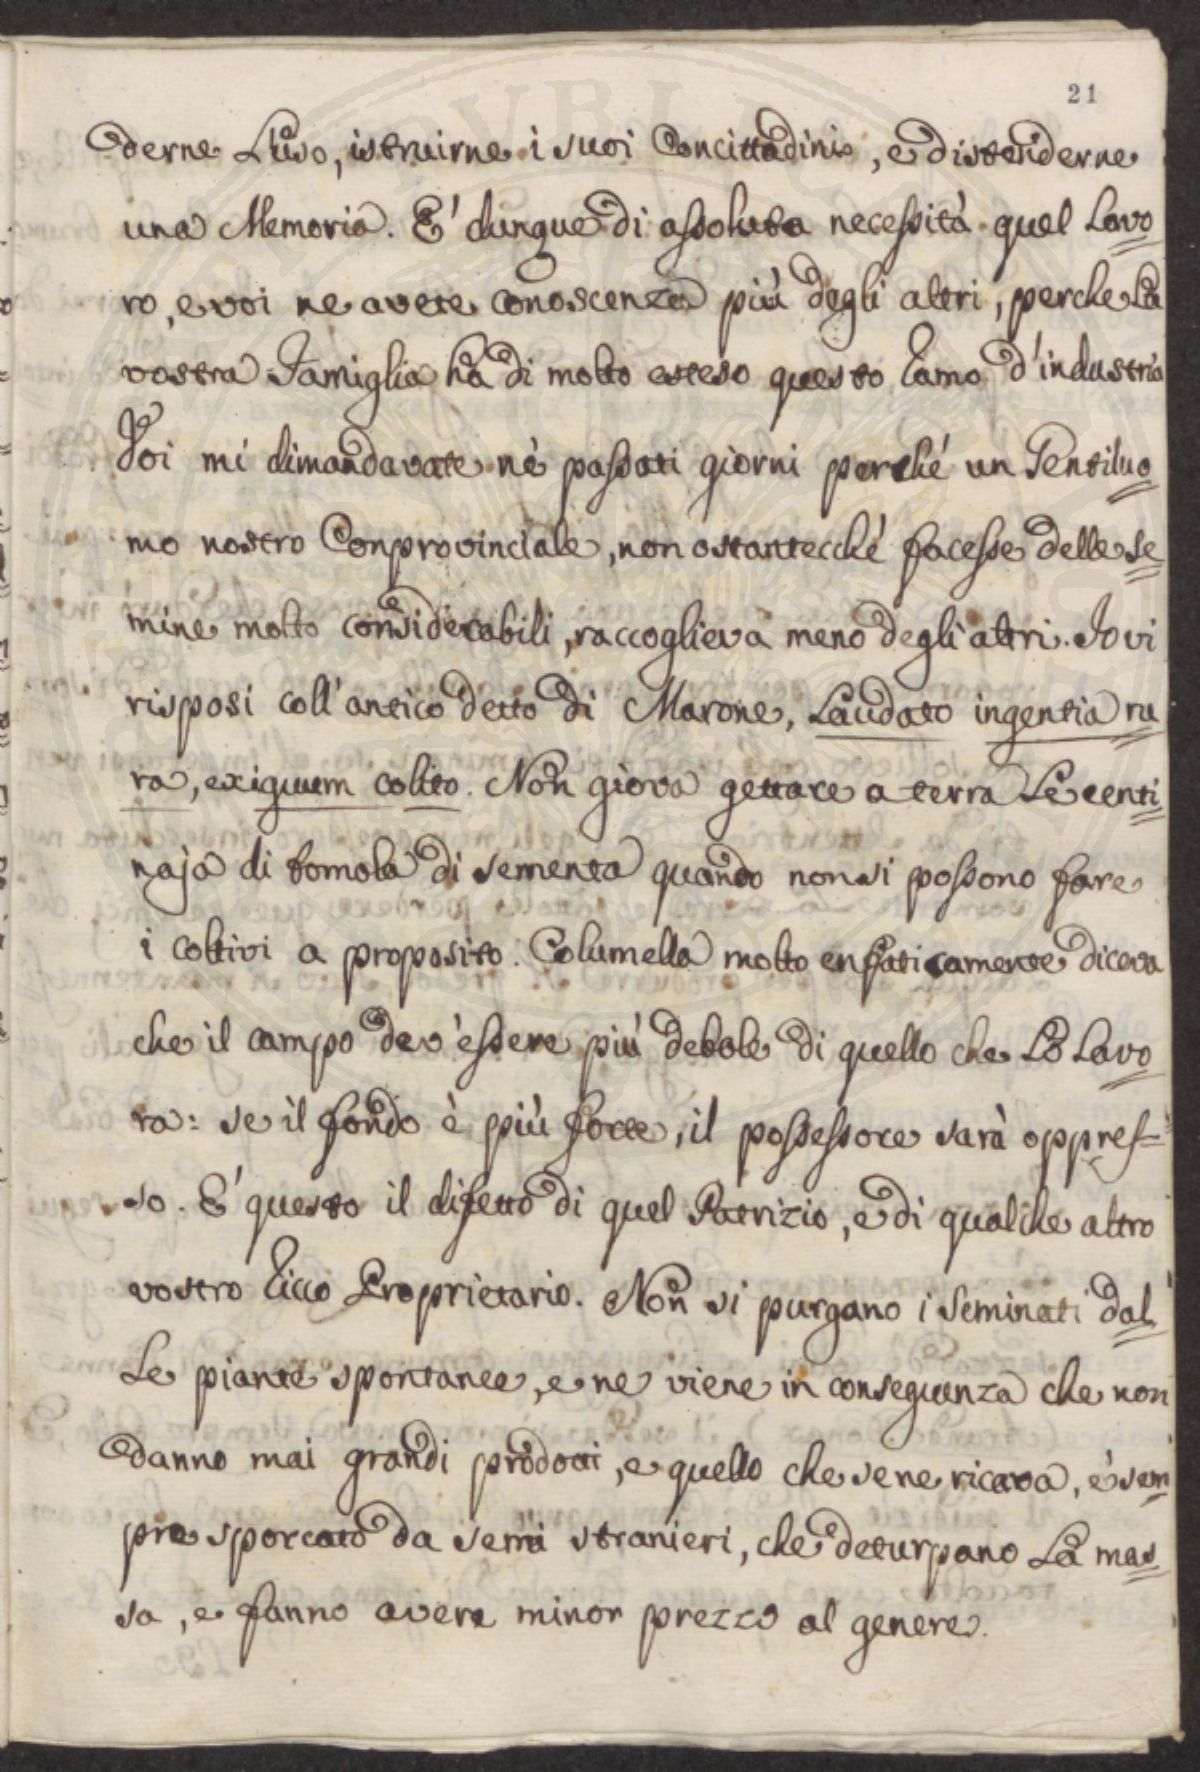 21
derne l'uso, istruirne i suoi Concittadini, e distenderne
una Memoria. E' dunque di assoluta necessità quel Lavo
ro, e voi ne avete conoscenza più degli altri, perche la
vostra Famiglia ha di molto esteso questo ramo d'industria
Voi mi dimandavate nè passati giorni perché un Gentiluo
mo nostro Conprovinciale, non ostantecché facesse delle se
mine molto considerabili, raccoglieva meno degli altri. Io vi
risposi coll'antico detto di Marone, Laudato ingentia ru
ra, exiguum colito. Non giova gettare a terra le centi
naja di tomola di sementa quando non si possono fare
i coltivi a proposito. Columella molto enfaticamente diceva
che il campo dev'essere più debole di quello che lo lavo
ra: se il fondo è più forte, il possessore sarà oppres=
so. E' questo il difetto di quel Patrizio, e di qualche altro
vostro ricco Proprietario. Non si purgano i seminati dal
le piante spontanee, e ne viene in conseguenza che non
danno mai grandi prodotti, e quello che se ne ricava, è sem
pre sporcato da semi stranieri, che deturpano la mas
sa, e fanno avere minor prezzo al genere.